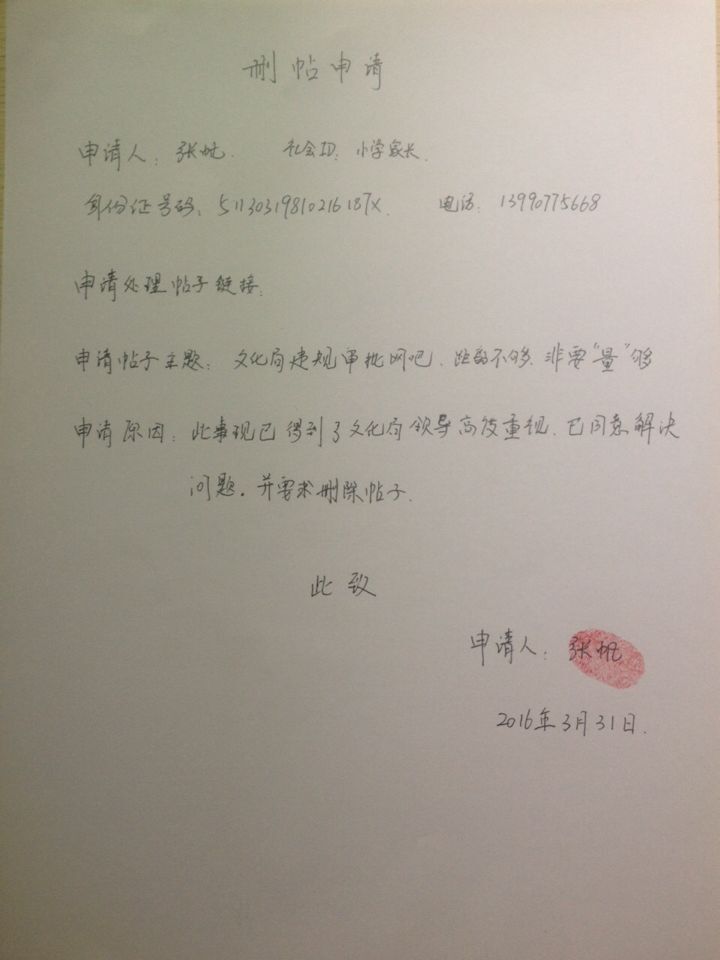 删帖申请
申请人：张帆. 社会ID：小学家长.
身份证号码：51130319810216187X. 电话：13990775668
申请处理帖子链接：
申请帖子主题：文化局违规审批网吧、距离不够、非要“量”够
申请原因：此事现已得到了文化局领导高度重视、已同意解决
问题。并要求删除帖子.
此致
申请人：张帆
2016年3月31日.